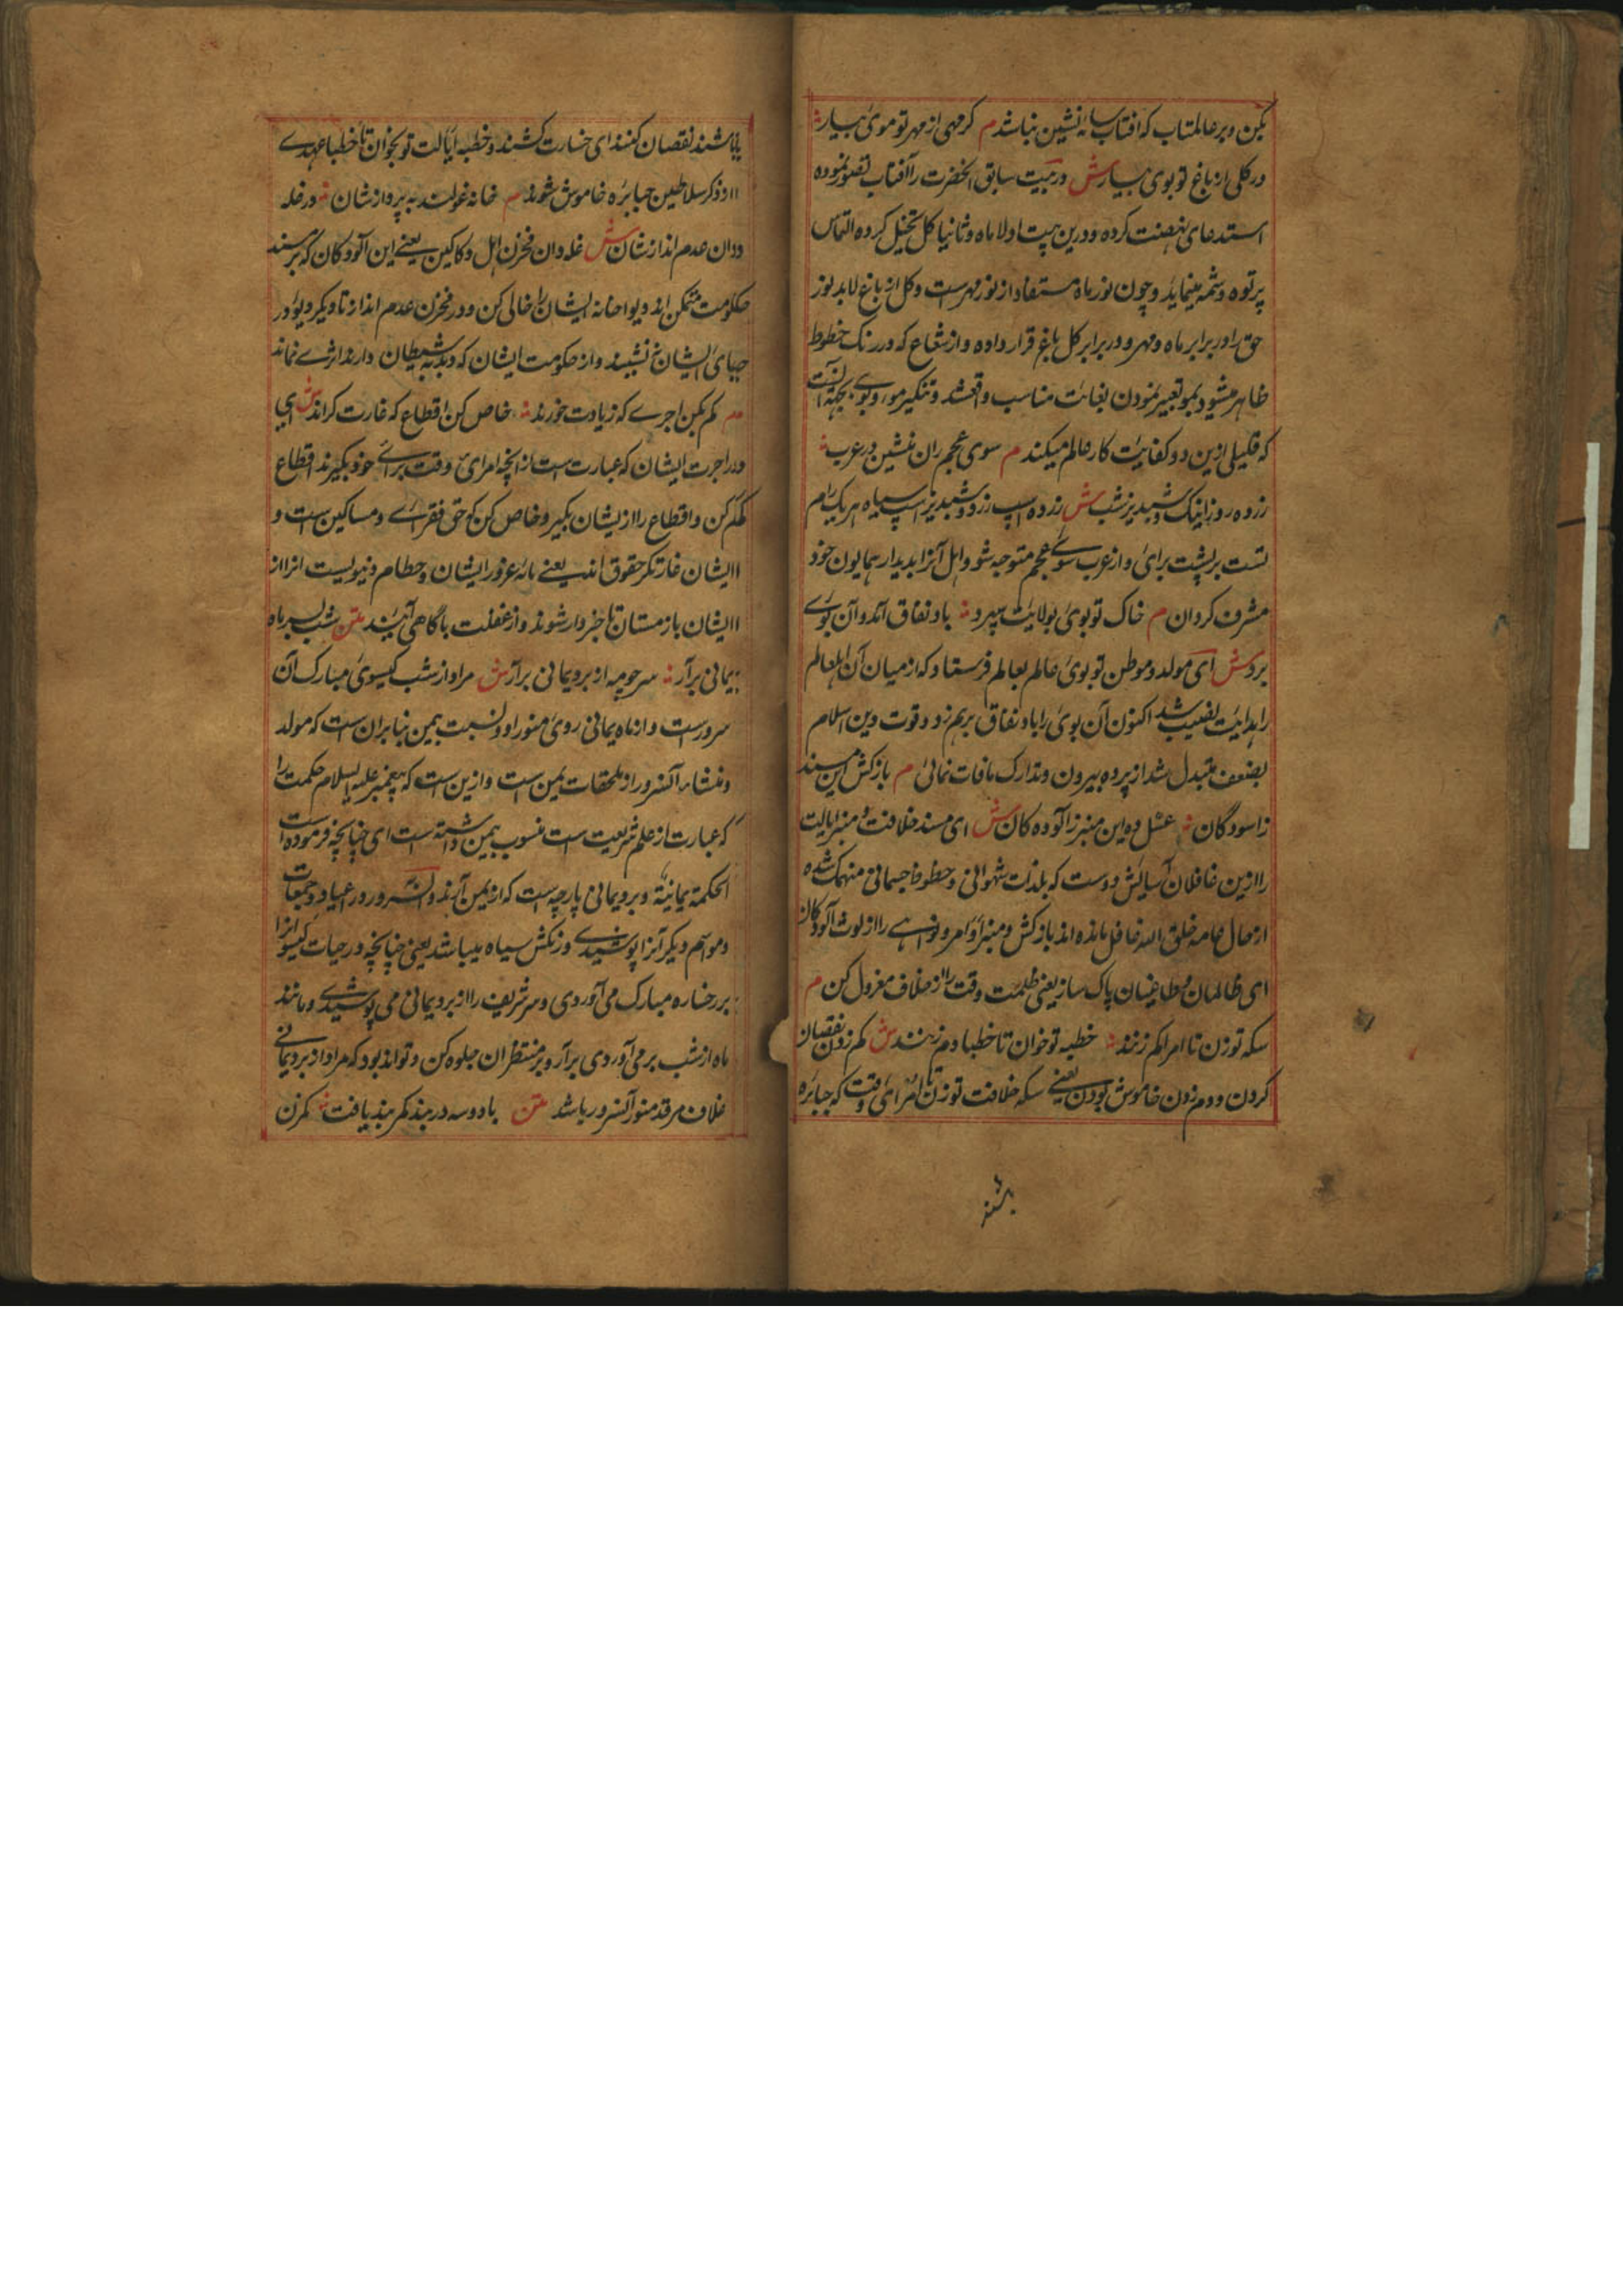 بکن و بر عالم بتاب که افتاب سایه نشین نباشد م کر مهی از مهر تو موی بیار
ور کلی از باغ تو بوی بیار ش در بیت سابق انحضرت را آفتاب تصور نموده
استدعای نهضت کرده و درین بیت اولا ماه و ثانیا کل تخیل کرده التماس
پرتوه و شمه مینماید و چون نور ماه مستفاد از نور مهرست و کل از باغ لابد نور
حق را در برابر ماه و مهر و در برابر کل باغ قرار داده و از شعاع که در رنک خطوط
ظاهر میشود بمو تعبیر نمودن بغایت مناسب واقعشد و تنکیر موی و بوی بجهة آنست
که قلیلی ازین دو کفایت کار عالم میکند م سوی عجم ران منشین در عرب
زرده روز اینک و شبدیز شب ش زرده اسپ زرد و شبدیز اسپ سیاه هر یک رام
تست بر پشت برای و از عرب سوی عجم متوجه شو و اهل آنرا بدیدار همایون خود
مشرف کردان م خاک تو بوی بولایت سپرد باد نفاق آمد و آن بوی
برد ش ای مولد و موطن تو بوی عالم بعالم فرستاد که از میان آن اهل عالم
را هدایت نصیب شد اکنون آن بوی را باد نفاق برهم زد و قوت دین اسلام
بضعف متبدل شد از پرده بیرون و تدارک مافات نمائی م باز کش این مسند
از اسودگان غسل ده این منبر ز آلوده کان ش ای مسند خلافت و منبر ایالت
را ازین غافلان آسایش دوست که بلذت شهوانی و حظوظ جسمانی منهمک شده
از حال عامه خلق الله غافل مانده اند باز کش و منبر اوامر و نواهی را از لوث آلودکان
ای ظالمان و طاغیان پاک ساز یعنی ظلمت وقت را از خلاف معزول کن م
سکه تو زن تا امرا کم زنند خطبه تو خوان تا خطبا دم زنند ش کم زدن نقصان
کردن و دم زدن خاموش بودن یعنی سکه خلافت تو زن تا امرای وقت که جبائره
باشند
باشند نقصان کنند ای خسارت کشند و خطبه ایالت تو بخوان تا خطبا عهدی
از ذکر سلاطین جبابره خاموش شوند م خانه غولند به پرداز شان در غله
دان عدم انداز شان ش غله دان مخزن اهل دکاکین یعنی این آلودکان که بر مسند
حکومت متمکن اند دیو اخانه ایشان را خالی کن و در مخزن عدم انداز تا دیکر دیو در
جای ایشان ننشیند و از حکومت ایشان که دبدبه شیطان دارند اثری نماند
م کم بکن اجری که زیادت خورند خاص کن اقطاع که غارت کرانند ش ای
در اجرت ایشان که عبارت است از انچه امرای وقت برای خود بگیرند اقطاع
کم کن و اقطاع را از یشان بگیر و خاص کن که حق فقرای و مساکین است و
ایشان غارتکر حقوق اند یعنی مایه غرور ایشان و حطام دنیویست انرا از
ایشان باز ستان تا خبردار شوند و از غفلت باگاهی آیند متن شب بسر ماه
یمانی برآر سر چو مه از برد یمانی برآر ش مراد از شب کیسوی مبارک آن
سرورست و از ماه یمانی روی منور او و نسبت بیمن بنا بر ان ست که مولد
و منشاء آنسرور از ملحقات یمن ست و ازین ست که پیغمبر علیه السلام حکمت را
که عبارت از علم شریعت است منسوب بیمن داشته است ای چنانچه فرموده است
الحکمة یمانیة و برد یمانی پارچه ست که از یمن آرند و آنسرور در اعیاد و جمعات
و مواسم دیکر آنرا پوشیدی و رنکش سیاه میباشد یعنی چنانچه در حیات کیسو انرا
بر رخساره مبارک می آوردی و سر شریف را از برد یمانی می پوشیدی و مانند
ماه از شب بر می آوردی برآر و بر منتظران جلوه کن و تواند بود که مراد از برد یمانی
غلاف مرقد منور آنسرور باشد متن باد و سه در بند کمر بند یافت کم زن